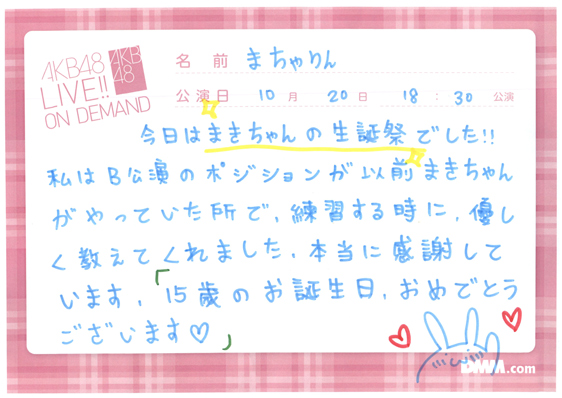 AKB48
LIVE!!
ON DEMAND
AKB
48
名前 まちゃりん
公演日 10月 20日 18:30公演
今日はまきちゃんの生誕祭でした!!
私はB公演のポジションが以前まきちゃん
がやっていた所で、練習する時に、優し
く教えてくれました、本当に感謝して
います、「15歳のお誕生日、おめでとう
ございます♡」
DMM.com